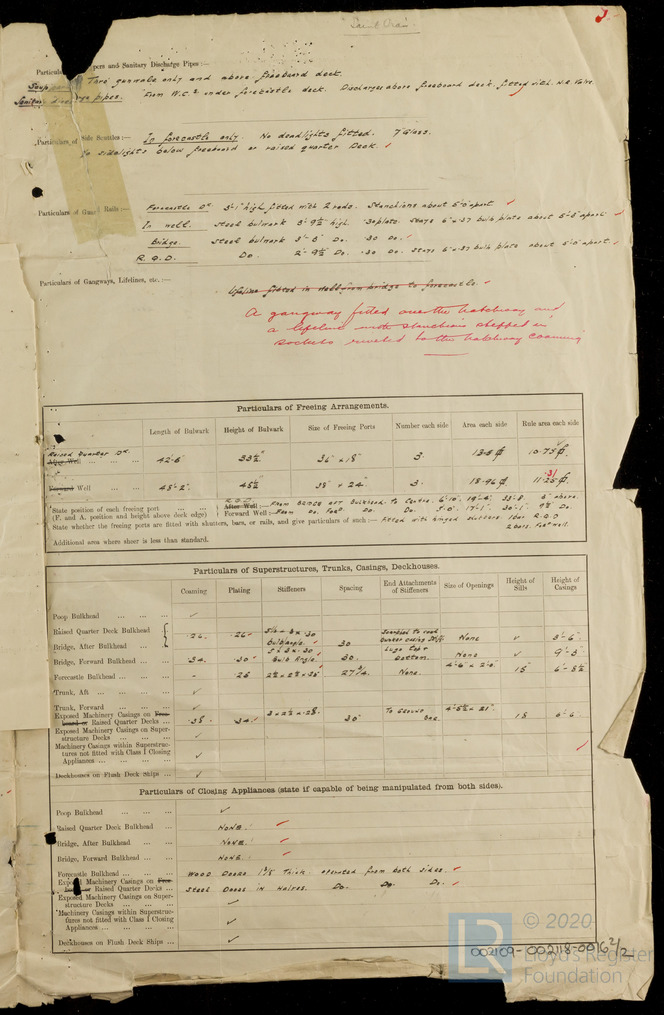 3
Particulars of Scuppers and Sanitary Discharge Pipes :—
Thro gunwale only and above freeboard deck.
Sanitary discharge pipes. From W.C.s under forecastle deck. Discharges above freeboard deck fitted with N.R. Valve.
Particulars of Side Scuttles :— In forecastle only. No deadlights fitted. 7" Glass.
No sidelights below freeboard or raised quarter Deck.
Particulars of Guard Rails :— Forecastle Dk 3'-1" high fitted with 2 rods. Stanchions about 5'-0" apart
In well. Steel bulwark 3'-9½" high. .30 plate. Stays 6" x .37 bulb plate about 5'-8" apart
Bridge. Steel bulwark 3'-5" Do. .30 Do.
R.Q.D. Do. 2'-9½ Do. .30 Do. Stays 6" x .37 bulb plate about 5'-0" apart
Particulars of Gangways, Lifelines, etc. :—
Lifeline fitted in well from bridge to forecastle.
A gangway fitted over the hatchway and
a lifeline with stanchions shipped in
sockets riveted to the hatchway coaming
Particulars of Freeing Arrangements.
Length of Bulwark Height of Bulwark Size of Freeing Ports Number each side Area each side Rule area each side
Raised Quarter Dk.
After Well 42'-6" 33½" 36" x 18" 3. 13.5 10.75
Forward Well 45'-2" 45½ 38" x 24" 3. 18.96 11.25 31
State position of each freeing port R.Q.D. After Well :— From BRIDGE AFT Bulkhead to Centre. 6'-10", 19'-4", 33'-8. 5" above.
(F. and A. position and height above deck edge) Forward Well :— From Do. For'd Do. Do. 3'-0" 17'-1" 30'-1" 9½" Do.
State whether the freeing ports are fitted with shutters, bars, or rails, and give particulars of such :— Fitted with hinged shutters 1 bar R.Q.D
2 bars. For'd well.
Additional area where sheer is less than standard.
Particulars of Superstructures, Trunks, Casings, Deckhouses.
Coaming Plating Stiffeners Spacing End Attachments of Stiffeners Size of Openings Height of Sills Height of Casings
Poop Bulkhead
Raised Quarter Deck Bulkhead
Bridge, After Bulkhead .26 .26 bulb angle. 30 None 3'-6"
Bridge, Forward Bulkhead .34 .30 5 x 3 x .30 Bulb Angle. 30. Lugs top & bottom. None 9'-3"
Forecastle Bulkhead - .25 27¾ None. 4'-6" x 2'-0" 15" 6'-8½
Trunk, Aft
Trunk, Forward
Exposed Machinery Casings on Freeboard or Raised Quarter Decks .38 .34 3 x 2½ x .28 30" 4'-5½ x 21" 18 6'-6
Exposed Machinery Casings on Superstructure Decks
Machinery Casings within Superstructures not fitted with Class I Closing Appliances
Deckhouses on Flush Deck Ships
Particulars of Closing Appliances (state if capable of being manipulated from both sides).
Poop Bulkhead
Raised Quarter Deck Bulkhead NONE.
Bridge, After Bulkhead NONE.
Bridge, Forward Bulkhead NONE.
Forecastle Bulkhead WOOD DOORS 1⅞ Thick operated from both sides.
Exposed Machinery Casings on Freeboard or Raised Quarter Decks STEEL DOORS in Halves. Do. Do. Do.
Exposed Machinery Casings on Superstructure Decks
Machinery Casings within Superstructures not fitted with Class I Closing Appliances
Deckhouses on Flush Deck Ships
LR © 2020
Lloyd's Register
Foundation
002109-002118-0016 2/2